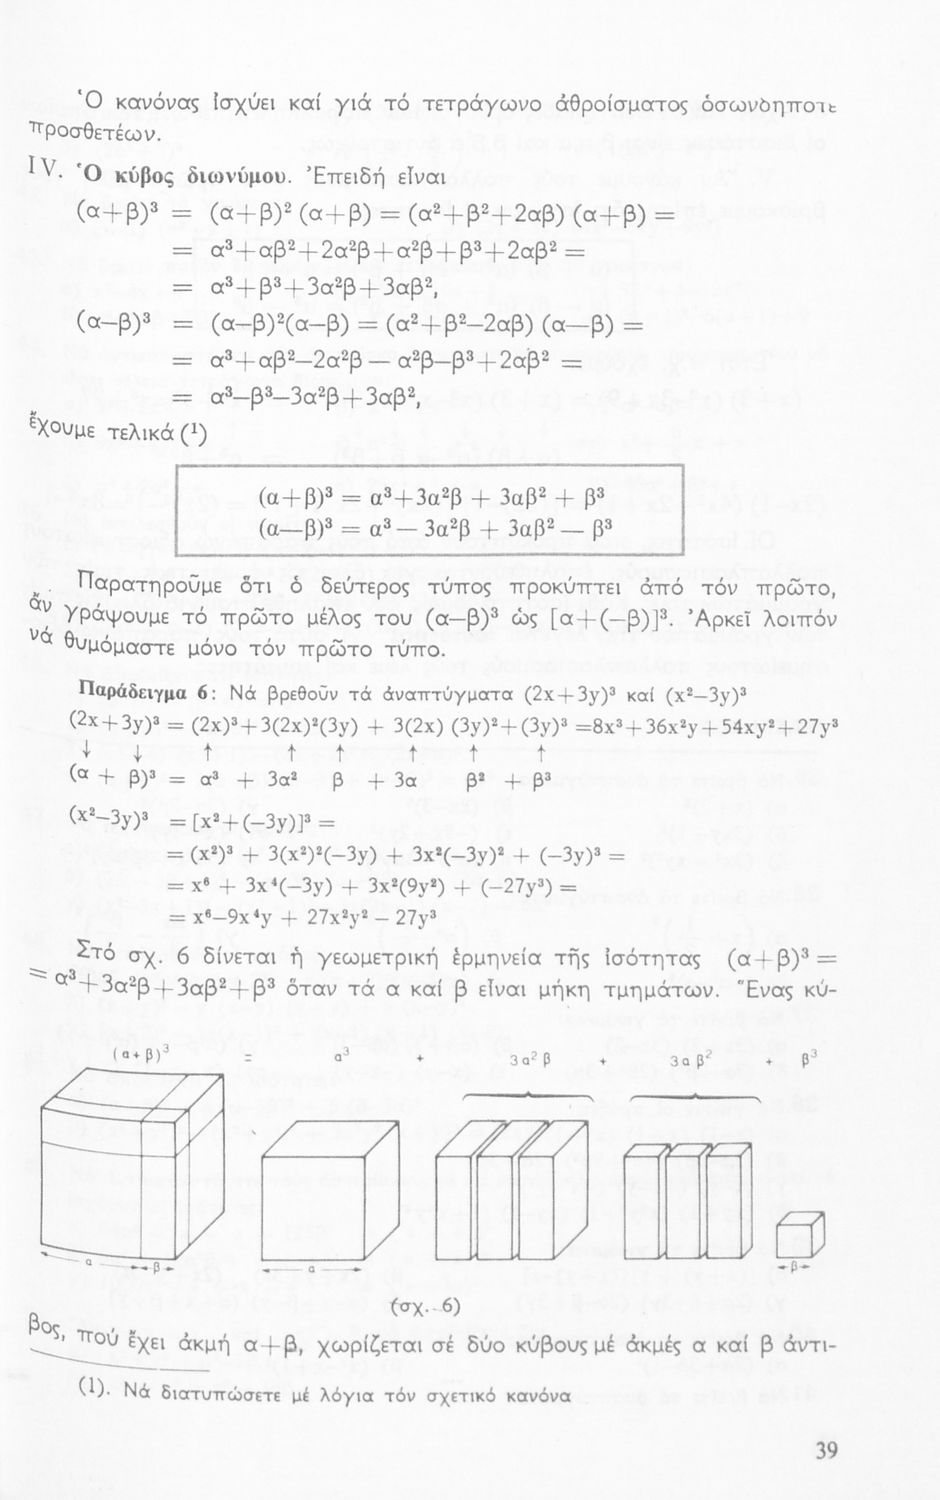 Ὁ κανόνας ἰσχύει καί γιά τό τετράγωνο ἀθροίσματος ὁσωνδήποτε
προσθετέων.
IV. Ὁ κύβος διωνύμου. Ἐπειδή εἶναι
(α+β)³ = (α+β)² (α+β) = (α²+β²+2αβ) (α+β) =
= α³+αβ²+2α²β+α²β+β³+2αβ² =
= α³+β³+3α²β+3αβ²,
(α—β)³ = (α—β)²(α—β) = (α²+β²—2αβ) (α—β) =
= α³+αβ²—2α²β — α²β—β³+2αβ² =
= α³—β³—3α²β+3αβ²,
ἔχουμε τελικά (¹)
(α+β)³ = α³+3α²β + 3αβ² + β³
(α—β)³ = α³ — 3α²β + 3αβ² — β³
Παρατηροῦμε ὅτι ὁ δεύτερος τύπος προκύπτει ἀπό τόν πρῶτο,
ἄν γράψουμε τό πρῶτο μέλος του (α—β)³ ὡς [α+(—β)]³. Ἀρκεῖ λοιπόν
νά θυμόμαστε μόνο τόν πρῶτο τύπο.
Παράδειγμα 6: Νά βρεθοῦν τά ἀναπτύγματα (2x+3y)³ καί (x²—3y)³
(2x+3y)³ = (2x)³+3(2x)²(3y) + 3(2x) (3y)²+(3y)³ =8x³+36x²y+54xy²+27y³
↓ ↓ ↑ ↑ ↑ ↑ ↑ ↑
(α + β)³ = α³ + 3α² β + 3α β² + β³
(x²—3y)³ = [x²+(—3y)]³ =
= (x²)³ + 3(x²)²(—3y) + 3x²(—3y)² + (—3y)³ =
= x⁶ + 3x⁴(—3y) + 3x²(9y²) + (—27y³) =
= x⁶—9x⁴y + 27x²y² — 27y³
Στό σχ. 6 δίνεται ἡ γεωμετρική ἑρμηνεία τῆς ἰσότητας (α+β)³ =
= α³+3α²β+3αβ²+β³ ὅταν τά α καί β εἶναι μήκη τμημάτων. Ἕνας κύ-
(α+β)³ = α³ + 3α²β + 3αβ² + β³
α β α β
(σχ. 6)
βος, πού ἔχει ἀκμή α+β, χωρίζεται σέ δύο κύβους μέ ἀκμές α καί β ἀντι-
(1). Νά διατυπώσετε μέ λόγια τόν σχετικό κανόνα
39